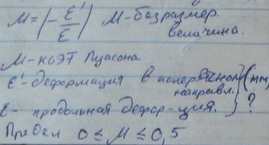 М=|-Ɛ'/Ɛ| М-безразмер.
величина.
М-коэт Пуасона.
Ɛ'-деформация в поперечном (мм,
направл.
Ɛ- продольная дефор-ция. ) ?
Предел 0≤М≤0,5